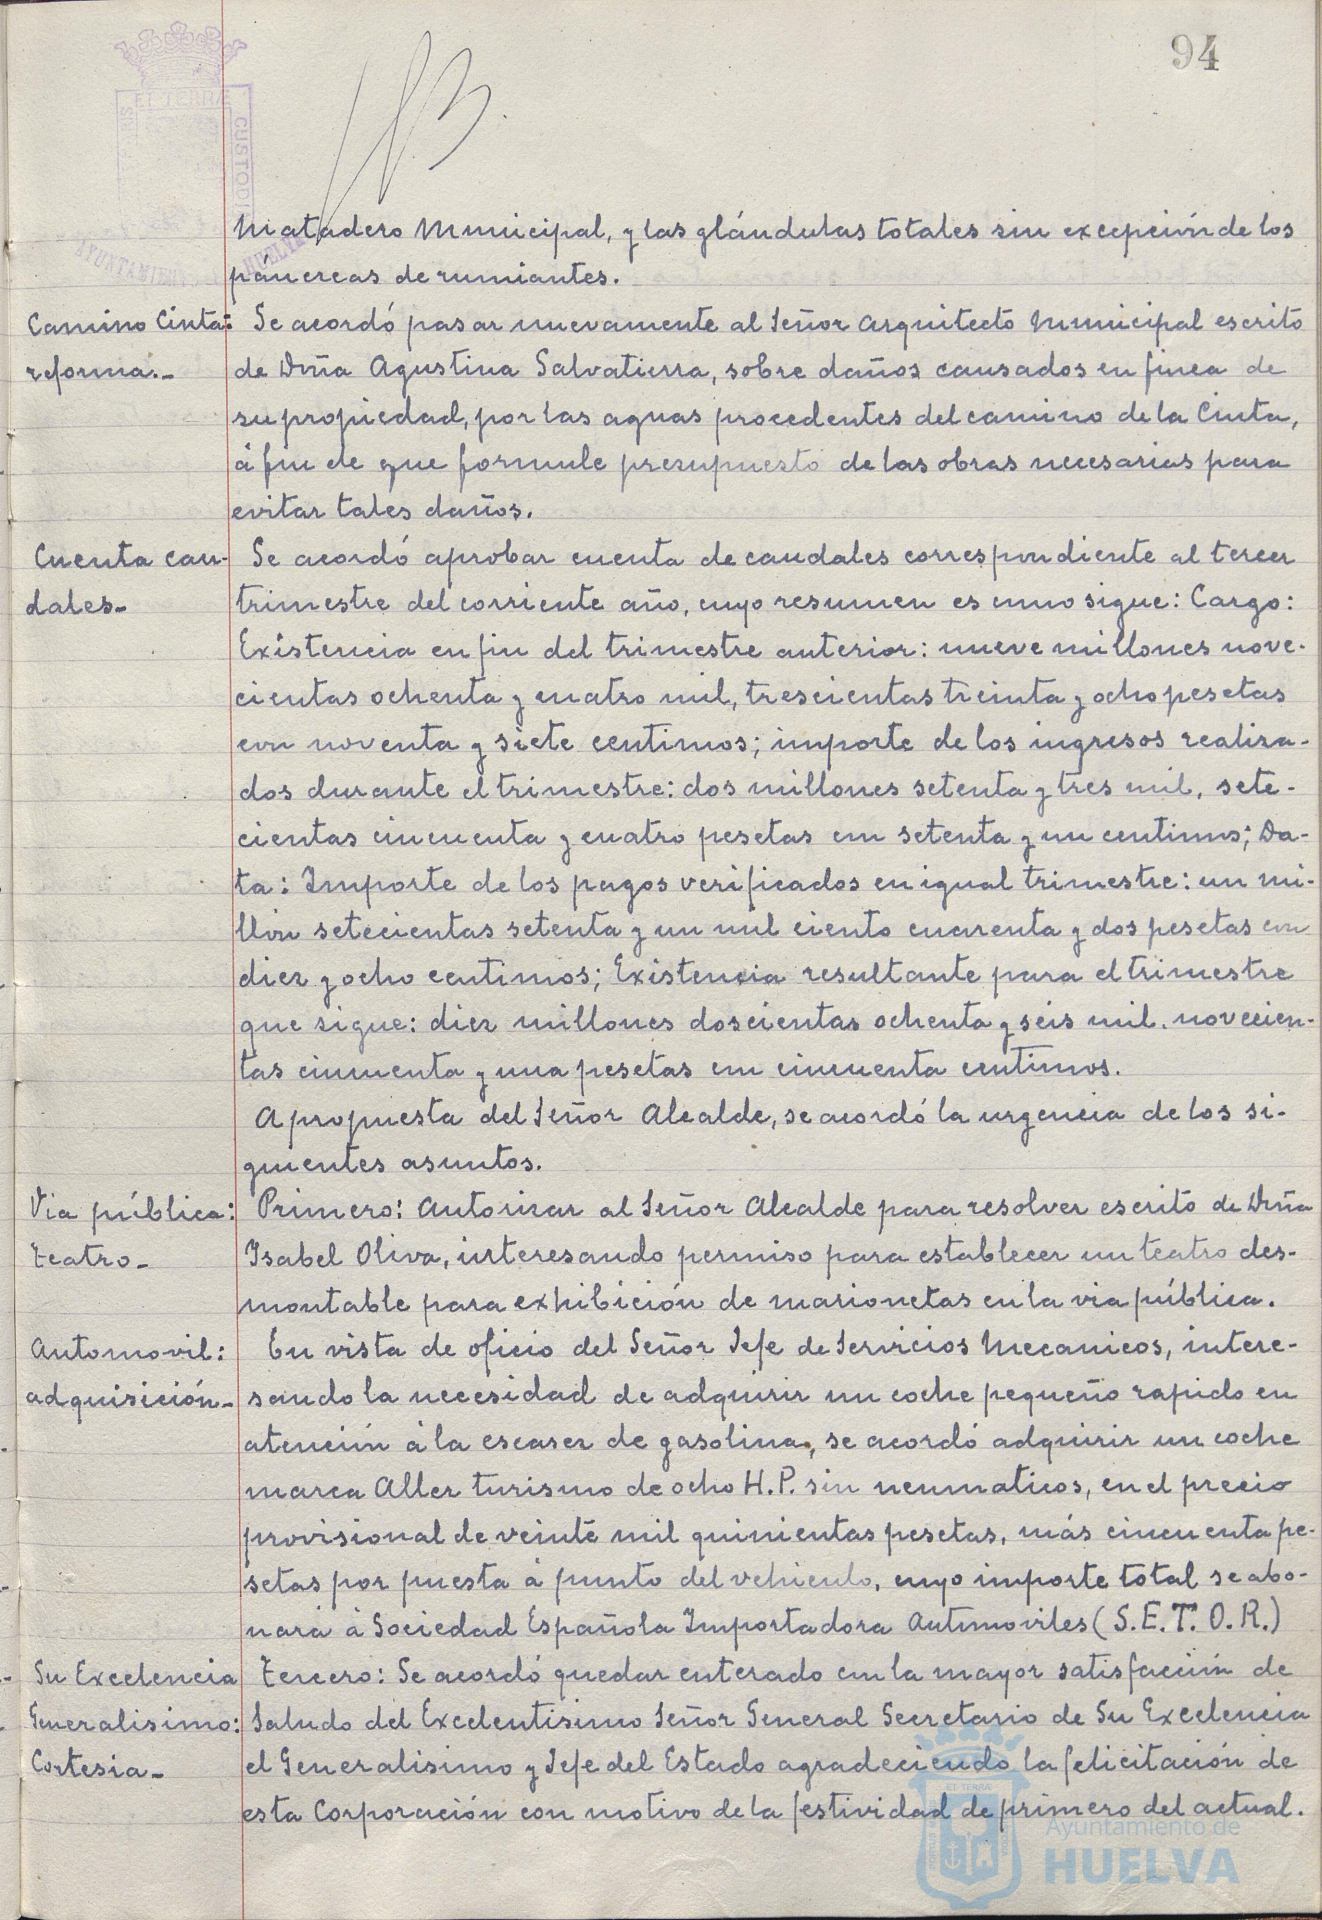 94
Matadero Municipal, y las glándulas totales sin excepción de los
páncreas de rumiantes.
Camino Cinta: Se acordó pasar nuevamente al Señor Arquitecto Municipal escrito
reforma.- de Doña Agustina Salvatierra, sobre daños causados en finca de
su propiedad, por las aguas procedentes del camino de la Cinta,
á fin de que formule presupuesto de las obras necesarias para
evitar tales daños.
Cuenta cau- Se acordó aprobar cuenta de caudales correspondiente al tercer
dales- trimestre del corriente año, cuyo resumen es como sigue: Cargo:
Existencia en fin del trimestre anterior: nueve millones nove-
cientas ochenta y cuatro mil, trescientas treinta y ocho pesetas
con noventa y siete centimos; importe de los ingresos realiza-
dos durante el trimestre: dos millones setenta y tres mil, sete-
cientas cincuenta y cuatro pesetas con setenta y un centimos; Da-
ta: Importe de los pagos verificados en igual trimestre: un mi-
llón setecientas setenta y un mil ciento cuarenta y dos pesetas con
diez y ocho centimos; Existencia resultante para el trimestre
que sigue: diez millones doscientas ochenta y seis mil, novecien-
tas cincuenta y una pesetas con cincuenta centimos.
A propuesta del Señor Alcalde, se acordó la urgencia de los si-
guientes asuntos.
Via pública: Primero: Autorizar al Señor Alcalde para resolver escrito de Doña
teatro- Isabel Oliva, interesando permiso para establecer un teatro des-
montable para exhibición de marionetas en la via pública.
Automovil: En vista de oficio del Señor Jefe de Servicios Mecanicos, intere-
adquisición- sando la necesidad de adquirir un coche pequeño rapido en
atención á la escasez de gasolina, se acordó adquirir un coche
marca Aller turismo de ocho H.P. sin neumaticos, en el precio
provisional de veinte mil quinientas pesetas, más cincuenta pe-
setas por puesta á punto del vehiculo, cuyo importe total se abo-
nará á Sociedad Española Importadora Automoviles (S.E.T.O.R.)
Su Excelencia Tercero: Se acordó quedar enterado con la mayor satisfacción de
Generalisimo: Saludo del Excelentisimo Señor General Secretario de Su Excelencia
Cortesia- el Generalisimo y Jefe del Estado agradeciendo la felicitación de
esta Corporación con motivo de la festividad de primero del actual.
Ayuntamiento de
HUELVA